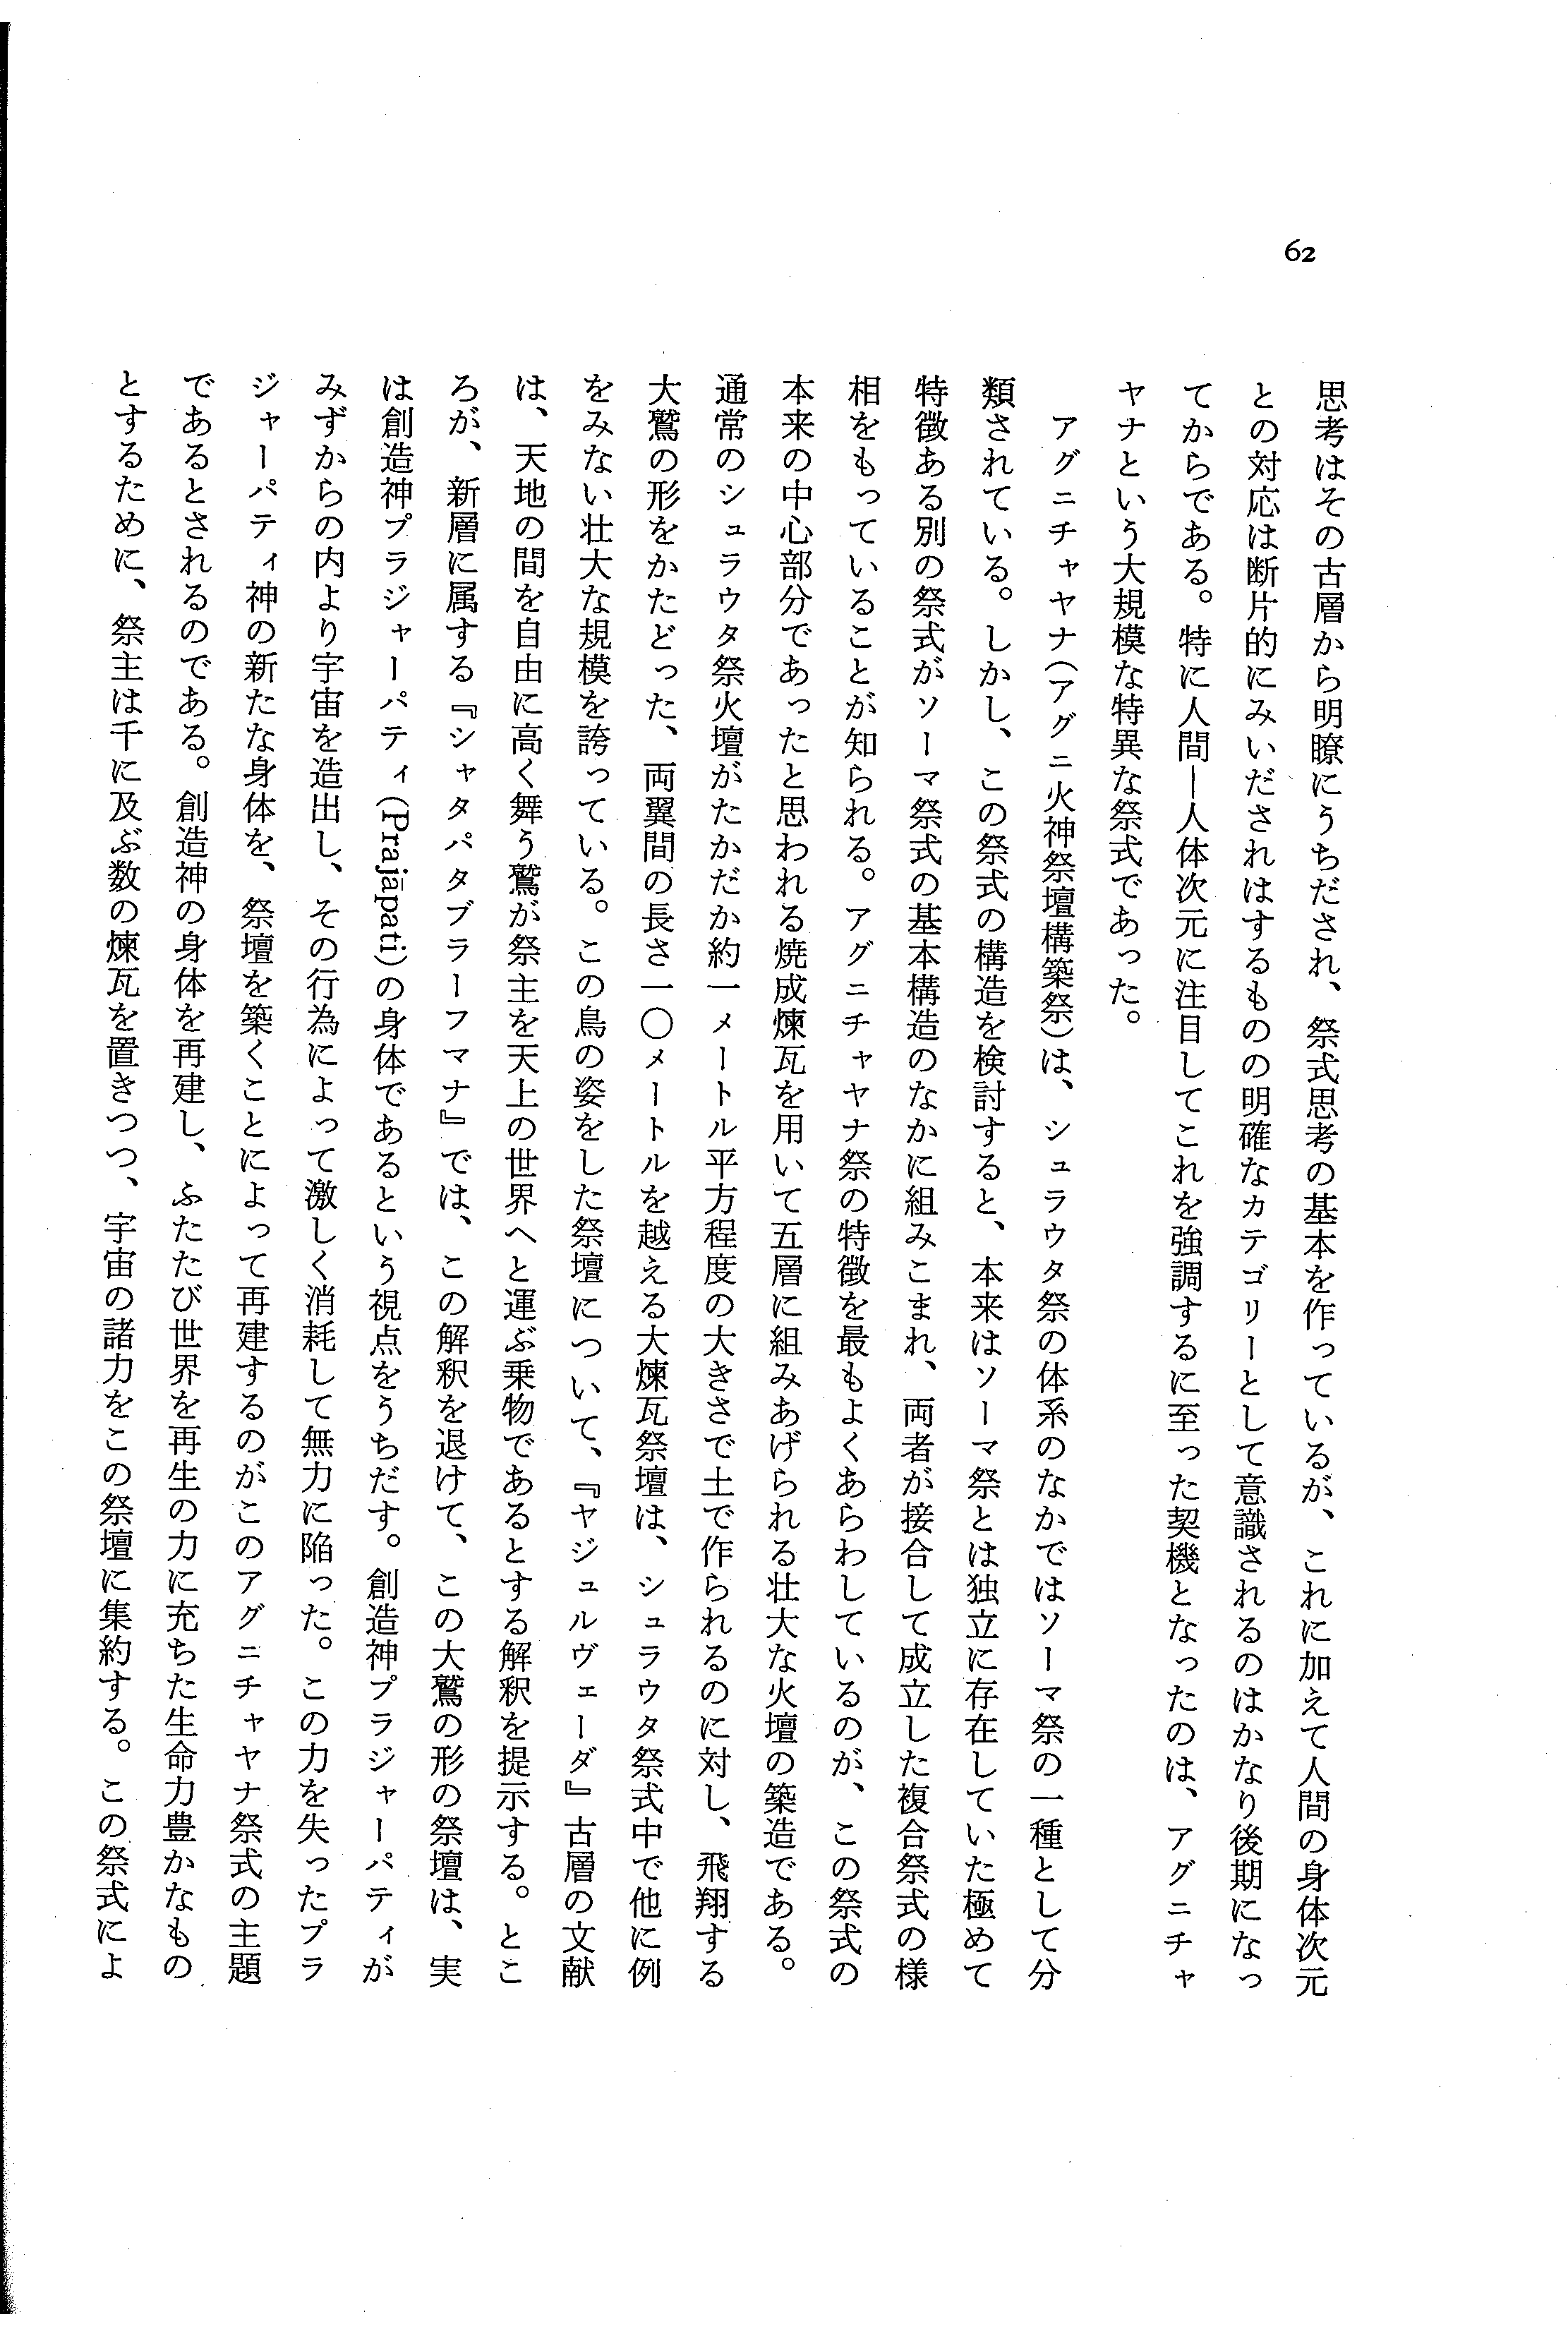 62
思考はその古層から明瞭にうちだされ、祭式思考の基本を作っているが、これに加えて人間の身体次元
との対応は断片的にみいだされはするものの明確なカテゴリーとして意識されるのはかなり後期になっ
てからである。特に人間―人体次元に注目してこれを強調するに至った契機となったのは、アグニチャ
ヤナという大規模な特異な祭式であった。
アグニチャヤナ(アグニ火神祭壇構築祭)は、シュラウタ祭の体系のなかではソーマ祭の一種として分
類されている。しかし、この祭式の構造を検討すると、本来はソーマ祭とは独立に存在していた極めて
特徴ある別の祭式がソーマ祭式の基本構造のなかに組みこまれ、両者が接合して成立した複合祭式の様
相をもっていることが知られる。アグニチャヤナ祭の特徴を最もよくあらわしているのが、この祭式の
本来の中心部分であったと思われる焼成煉瓦を用いて五層に組みあげられる壮大な火壇の築造である。
通常のシュラウタ祭火壇がたかだか約一メートル平方程度の大きさで土で作られるのに対し、飛翔する
大鷲の形をかたどった、両翼間の長さ一〇メートルを越える大煉瓦祭壇は、シュラウタ祭式中で他に例
をみない壮大な規模を誇っている。この鳥の姿をした祭壇について、『ヤジュルヴェーダ』古層の文献
は、天地の間を自由に高く舞う鷲が祭主を天上の世界へと運ぶ乗物であるとする解釈を提示する。とこ
ろが、新層に属する『シャタパタブラーフマナ』では、この解釈を退けて、この大鷲の形の祭壇は、実
は創造神プラジャーパティ(Prajāpati)の身体であるという視点をうちだす。創造神プラジャーパティが
みずからの内より宇宙を造出し、その行為によって激しく消耗して無力に陥った。この力を失ったプラ
ジャーパティ神の新たな身体を、祭壇を築くことによって再建するのがこのアグニチャヤナ祭式の主題
であるとされるのである。創造神の身体を再建し、ふたたび世界を再生の力に充ちた生命力豊かなもの
とするために、祭主は千に及ぶ数の煉瓦を置きつつ、宇宙の諸力をこの祭壇に集約する。この祭式によ